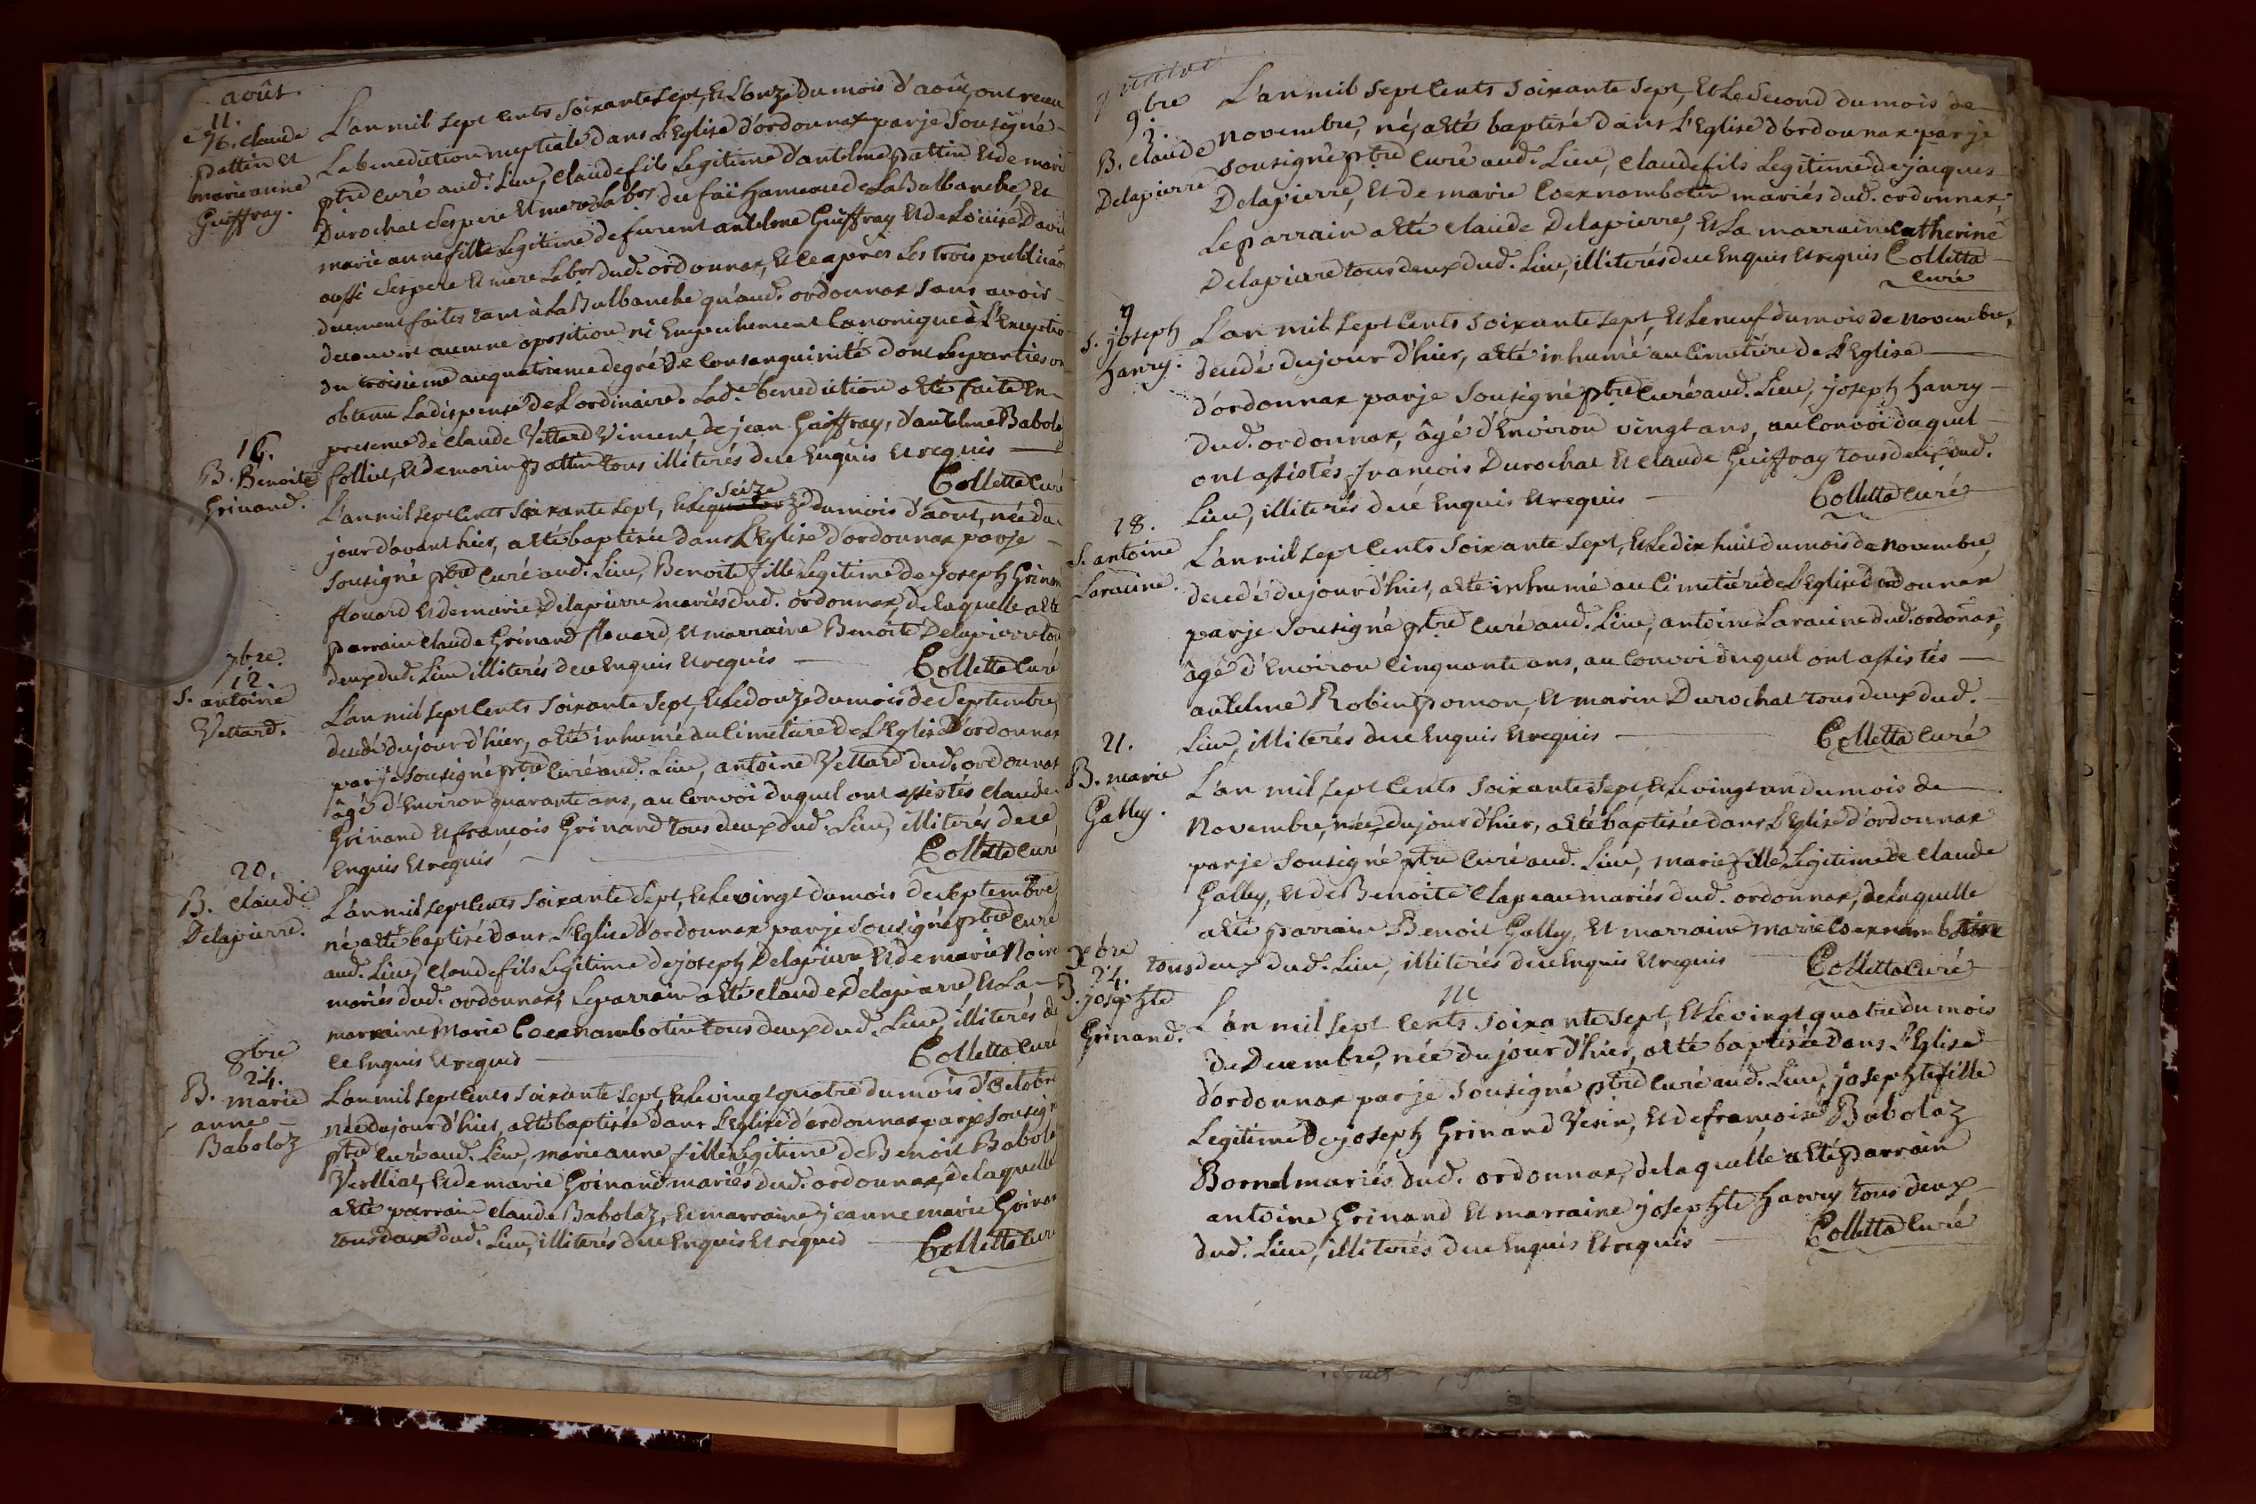 août.
11.
M. claude
pattin et
marie anne
Guiffray.
L'an mil sept cents soixante sept, et L'onze du mois d'août, ont receu
La benediction nuptiale dans L'Eglise d'ordonnax par je sousigné
ptre curé aud. Lieu, claude fils Legitime d'antelme pattin et de marie
Durochat ses pere et mere Labrs du faï hameau de La Balbanche, et
marie anne fille Legitime de furent antelme Guiffray et de Loüise David
aussi ses pere et mere Labrs dud. ordonnax, et ce après Les trois publicaõns
duement faites tant à La Balbanche qu'aud. ordonnax sans avoir
decouvert aucune oposition ni Empechement Canonique à L'Exception
du troisieme au quatrieme degré de Consanguinité dont Les parties ont
obtenu La dispense de L'ordinaire. Lad. benediction a Eté faite En
presence de claude Vettard Vincent, de jean Guiffray, d'antelme Babolaz
folliet, et de marin pattin tous illiterés de ce Enquis et requis
Colletta Curé
16.
B. Benoite
Grinand.
L'an mil sept cents soixante sept, et Le seize du mois d'août, née du
jour d'avant hier, a Eté baptisée dans L'Eglise d'ordonnax par je
sousigné ptre Curé aud. Lieu, Benoite fille Legitime de joseph Grinand
flouard et de marie Delapierre mariés dud. ordonnax, de laquelle a Eté
parrain claude Grinand flouard, et marraine Benoite Delapierre tous
deux dud. Lieu illiterés de ce Enquis et requis
Colletta Curé
7bre.
12
S. antoine
Vettard.
L'an mil sept cents soixante sept, et Le douze du mois de Septembre,
decedé du jour d'hier, a Eté inhumé au Cimetiere de L'Eglise D'ordonnax
par je sousigné ptre Curé aud. Lieu, antoine Vettard dud. ordonnax
âgé d'Environ quarante ans, au Convoi duquel ont assistés claude
Grinand et françois Grinand tous deux dud. Lieu, illiterés de ce
Enquis et requis
Colletta Curé
20.
B. claude
Delapierre.
L'an mil sept cents soixante sept, et Le vingt du mois de septembre
né a Eté baptisé dans L'Eglise d'ordonnax par je sousigné ptre Curé
aud. Lieu, claude fils Legitime de joseph Delapierre et de marie Noire
mariés dud. ordonnax, Le parrain a Eté claude Delapierre, et La
marraine Marie Coexnambotin tous deux dud. Lieu, illiterés de
ce Enquis et requis
Colletta Curé
8bre
24.
B. marie
anne
Babolaz
L'an mil sept cents soixante sept, et Le vingt quatre du mois d'Octobre
née du jour d'hier, a Eté baptisée dans L'Eglise d'ordonnax par je sousigné
ptre Curé aud. Lieu, marie anne fille Legitime de Benoit Babolaz
Verlliat, et de marie Grinand mariés dud. ordonnax, de laquelle
a Eté parrain claude Babolaz, et marraine jeanne marie Grinand
tous deux dud. Lieu, illiterés de ce Enquis et requis
Colletta Curé
9bre
2.
B. claude
Delapierre
L'an mil sept cents soixante sept, et Le second du mois de
novembre, né, a Eté baptisé dans L'Eglise d'ordonnax par je
sousigné ptre Curé aud. Lieu, claude fils Legitime de jacques
Delapierre, et de marie Coexnambotin mariés dud. ordonnax,
Le parrain a Eté claude Delapierre, et La marraine Catherine
Delapierre tous deux dud. Lieu, illiterés de ce Enquis et requis Colletta
Curé
9
S. joseph
hanry.
L'an mil sept cents soixante sept, et Le neuf du mois de novembre,
decedé du jour d'hier, a Eté inhumé au Cimetiere de L'Eglise
d'ordonnax par je sousigné ptre Curé aud. Lieu, joseph hanry
dud. ordonnax, âgé d'Environ vingt ans, au Convoi duquel
ont assistés françois Durochat et claude Guiffray tous deux dud.
Lieu, illiterés de ce Enquis et requis
Colletta Curé
18.
S. antoine
Laracine.
L'an mil sept cents soixante sept, et Le dix huit du mois de novembre,
decedé du jour d'hier, a Eté inhumé au Cimetiére de L'Eglise d'ordonnax
par je sousigné ptre Curé aud. Lieu, antoine Laracine dud. ordonax,
âgé d'Environ Cinquante ans, au Convoi duquel ont assistés
antelme Robin pomon, et marin Durochat tous deux dud.
Lieu, illiterés de ce Enquis et requis
Colletta Curé
21.
B. marie
Galley.
L'an mil sept cents soixante sept, et Le vingt un du mois de
Novembre, née du jour d'hier, a Eté baptisée dans L'Eglise d'ordonnax
par je sousigné ptre Curé aud. Lieu, marie fille Legitime de claude
Galley, et de Benoite Clapeau mariés dud. ordonnax, de laquelle
a Eté parrain Benoit Galley, et marraine marie Coexnambotin
tous deux dud. Lieu, illiterés de ce Enquis et requis
Colletta Curé
xbre
24.
B. josephte
Grinand.
L'an mil sept cents soixante sept, et Le vingt quatre du mois
de Decembre, née du jour d'hier, a Eté baptisée dans L'Eglise
d'ordonnax par je sousigné ptre Curé aud. Lieu, josephte fille
Legitime de joseph Grinand Vesin, et de françoise Babolaz
Bornel mariés dud. ordonnax, de laquelle a Eté parrain
antoine Grinand et marraine josephte hanry tous deux
dud. Lieu, illiterés de ce Enquis et requis
Colletta Curé